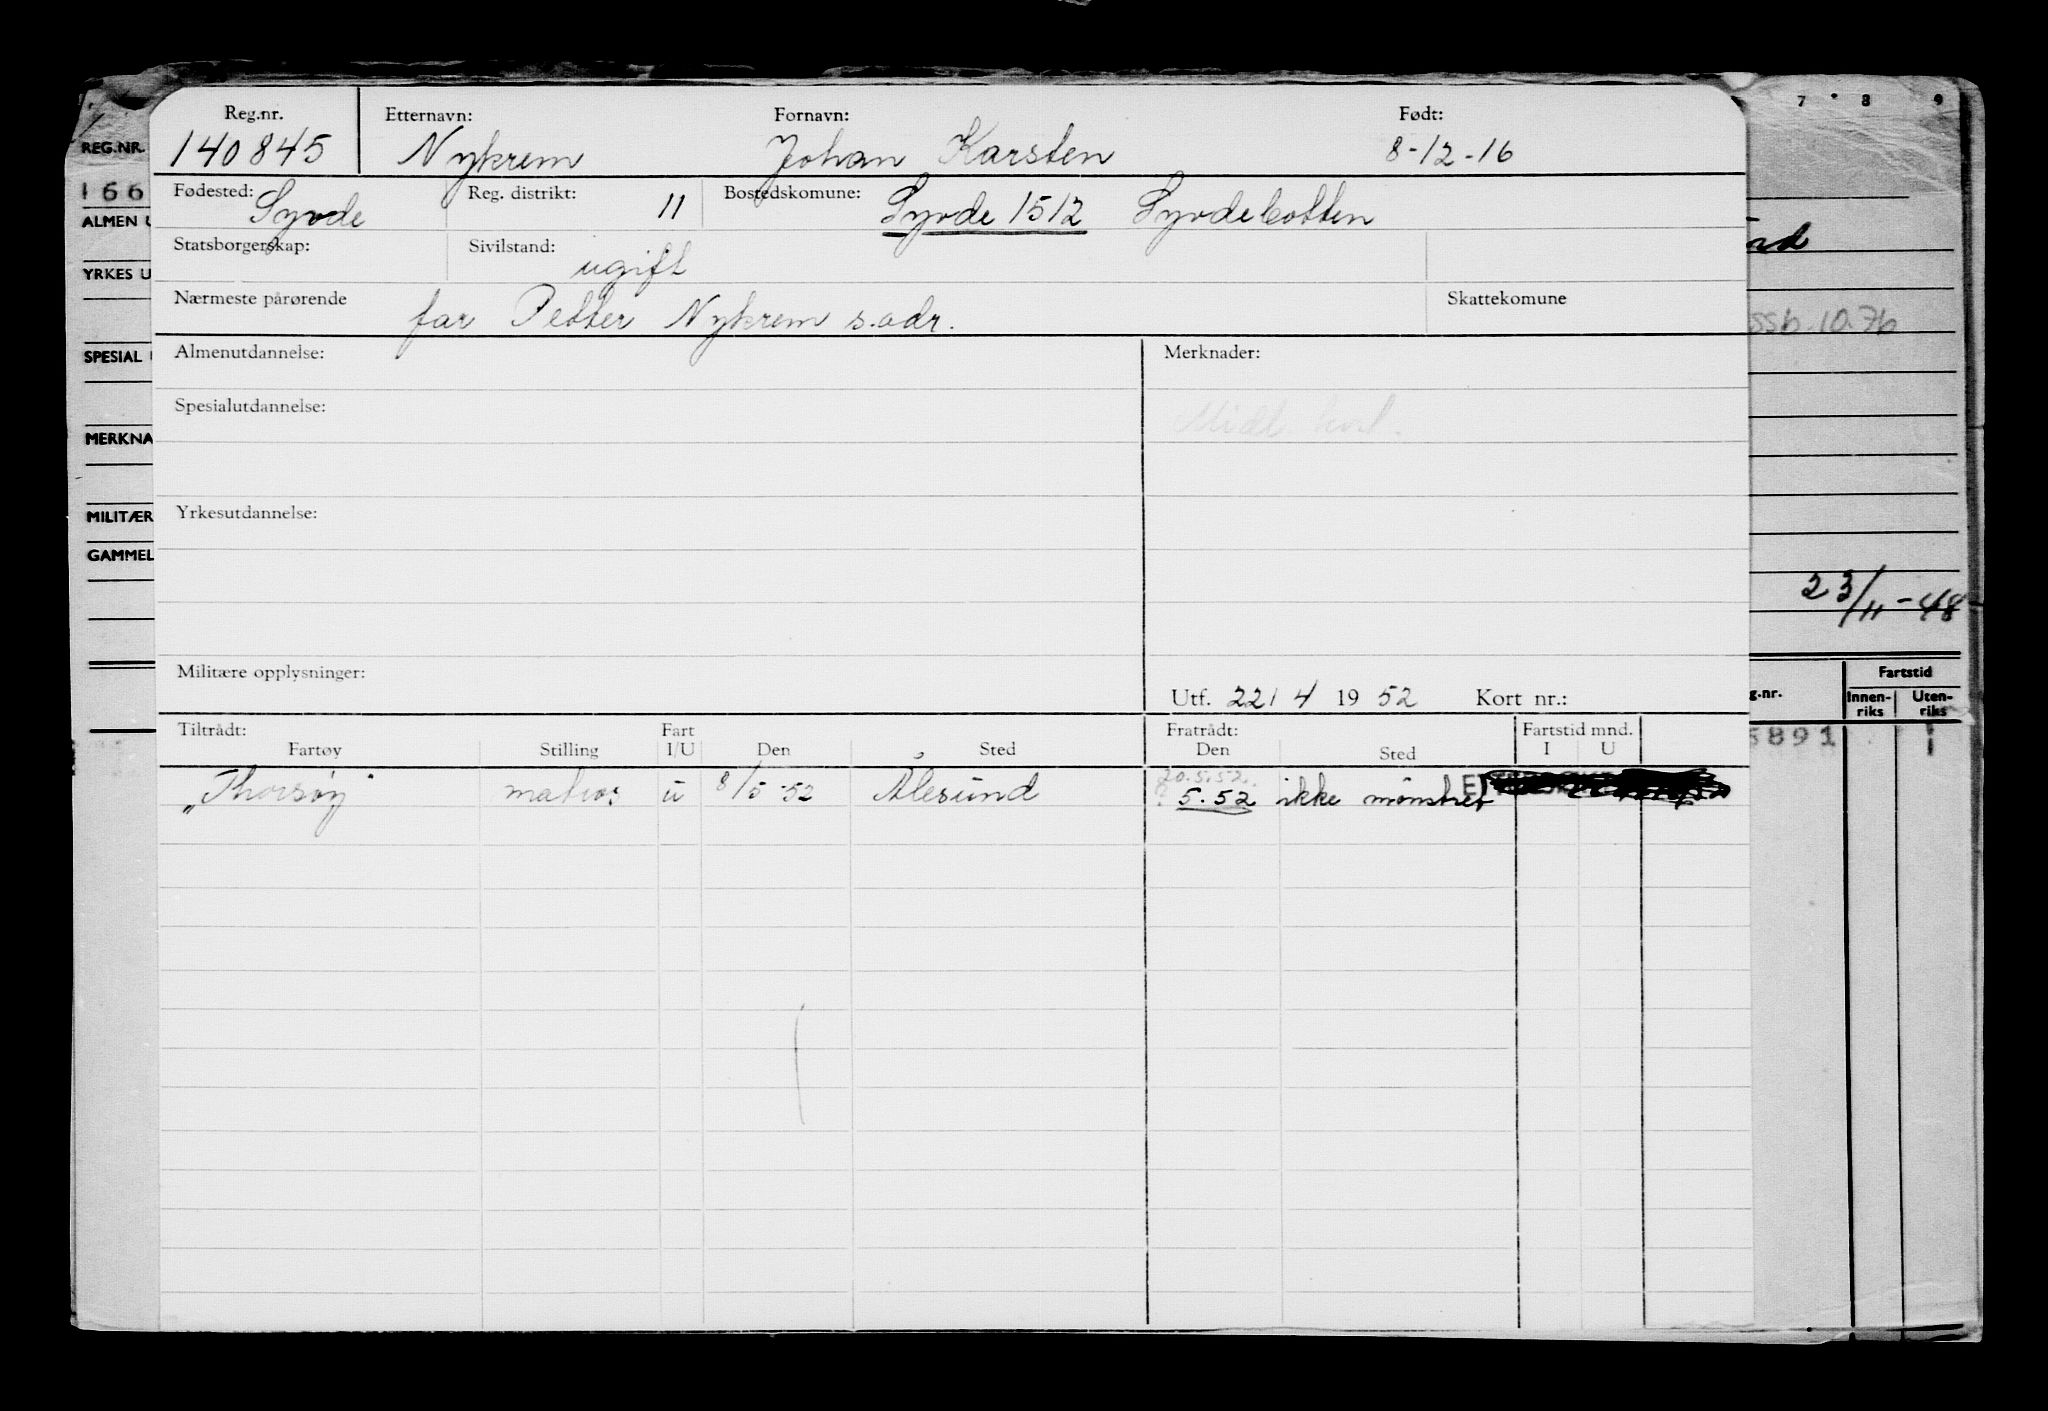 Reg.nr. Etternavn: Fornavn: Født: 7 8 9
REG.NR. 140845 Nykrem Johan Karsten 8-12-16
166 Fødested: Syvde Reg. distrikt: 11 Bostedskomune: Syvde 1512 Syvdebotten
ALMEN U
Statsborgerskap: Sivilstand: ugift
YRKES U
Nærmeste pårørende far Petter Nykrem s.adr. Skattekomune
SPESIAL Almenutdannelse: Merknader:
Spesialutdannelse: Midl. kort.
MERKNA
MILITÆR Yrkesutdannelse:
GAMMEL
23/11-48
Militære opplysninger: Utf. 22/4 1952 Kort nr.: g.nr. Fartstid
Innen-riks Uten-riks
Tiltrådt: Fart Fratrådt: Fartstid mnd.
Fartøy Stilling I/U Den Sted Den Sted I U
5891
20.5.52.
"Thorsøy" matros u 8/5-52 Ålesund 5.52 ikke mønstret